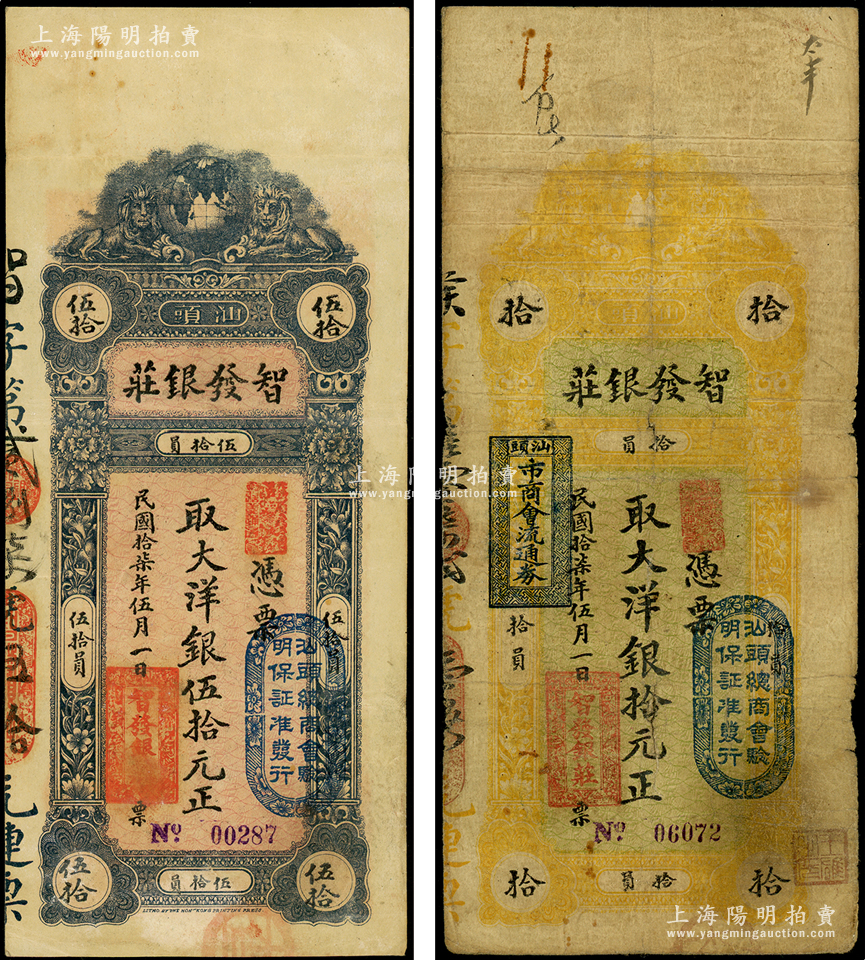 上海陽明拍賣
www.yangmingauction.com
伍拾
伍拾
汕頭
智發銀莊
伍拾員
憑票
取大洋銀伍拾元正
民國拾柒年伍月一日
伍拾員
伍拾員
汕頭總商會驗
明保証准發行
智發銀
票
Nº 00287
伍拾
伍拾
伍拾員
LITHO BY THE HONGKONG PRINTING PRESS.
上海陽明拍賣
www.yangmingauction.com
拾
拾
汕頭
智發銀莊
拾員
汕頭
市商會流通券
憑票
取大洋銀拾元正
民國拾柒年伍月一日
拾員
拾員
汕頭總商會驗
明保証准發行
智發銀莊
票
Nº 06072
拾
拾
拾員
上海陽明拍賣
www.yangmingauction.com